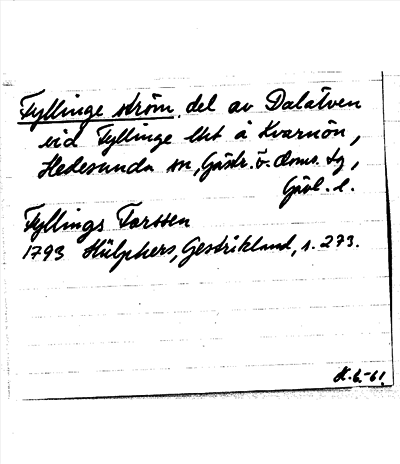 Fyllinge ström, del av Dalälven
vid Fyllinge lht å Kvarnön,
Hedesunda sn, Gästr. ö. doms. tg,
Gävl. l.
Fyllings Forssen
1793 Hülphers, Gestrikland, s. 273.